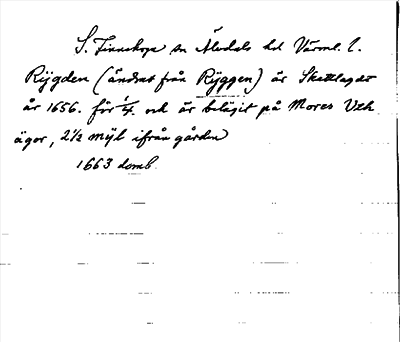 S. Finnskoga sn Älvdals hd Värml. l.
Rÿgden (ändrat från Rÿggen) är Skattlagdt
år 1656. för 1/4. och är belägit på Mores Uth
ägor, 2 1/2 mÿl ifrån gården
1663 domb.